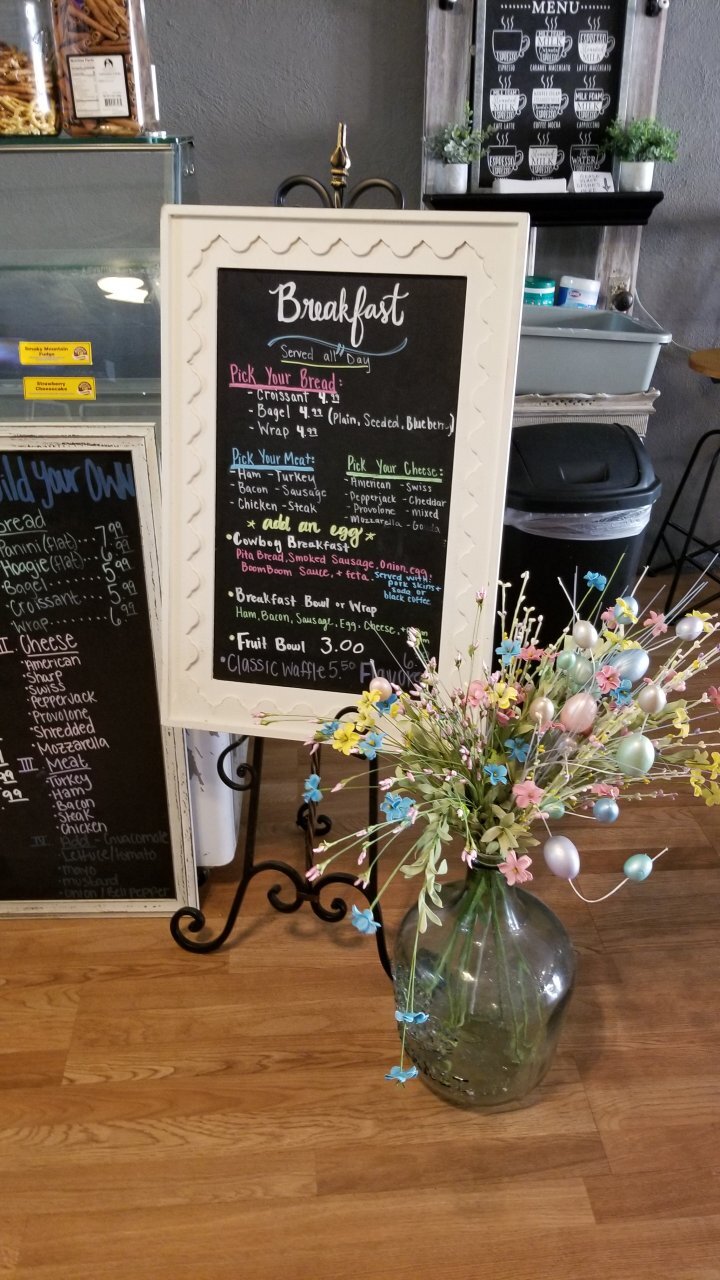 MENU
ESPRESSO
CARAMEL MACCHIATO
LATTE MACCHIATO
CAFE LATTE
COFFEE MOCHA
CAPPUCCINO
Smoky Mountain
Fudge
Strawberry
Cheesecake
Breakfast
Served all Day
Pick Your Bread:
- Croissant 4.99
- Bagel 4.99 (Plain, Seeded, Blueberry)
- Wrap 4.99
Pick Your Meat:
- Ham - Turkey
- Bacon - Sausage
- Chicken - Steak
Pick Your Cheese:
- American - Swiss
- Pepperjack - Cheddar
- Provolone - mixed
- Mozzarella - Gouda
* add an egg *
• Cowboy Breakfast
Pita Bread, Smoked Sausage, Onion, egg,
BoomBoom Sauce, + feta.
served with
pork skins +
soda or
black coffee
• Breakfast Bowl or Wrap
Ham, Bacon, Sausage, Egg, Cheese, +
• Fruit Bowl 3.00
• Classic Waffle 5.50
ild your OWN
Bread
Panini (flat) .. 7.99
Hoagie (flat) .
Bagel 5.99
Croissant .... 5.99
Wrap ........ 6.99
II Cheese
• American
• Sharp
• Swiss
• Pepperjack
• Provolone
• Shredded
• Mozzarella
III Meat
• Turkey
• Ham
• Bacon
• Steak
• Chicken
IV Add - Guacamole
• Lettuce/tomato
• mayo
• mustard
• onion / Bell pepper